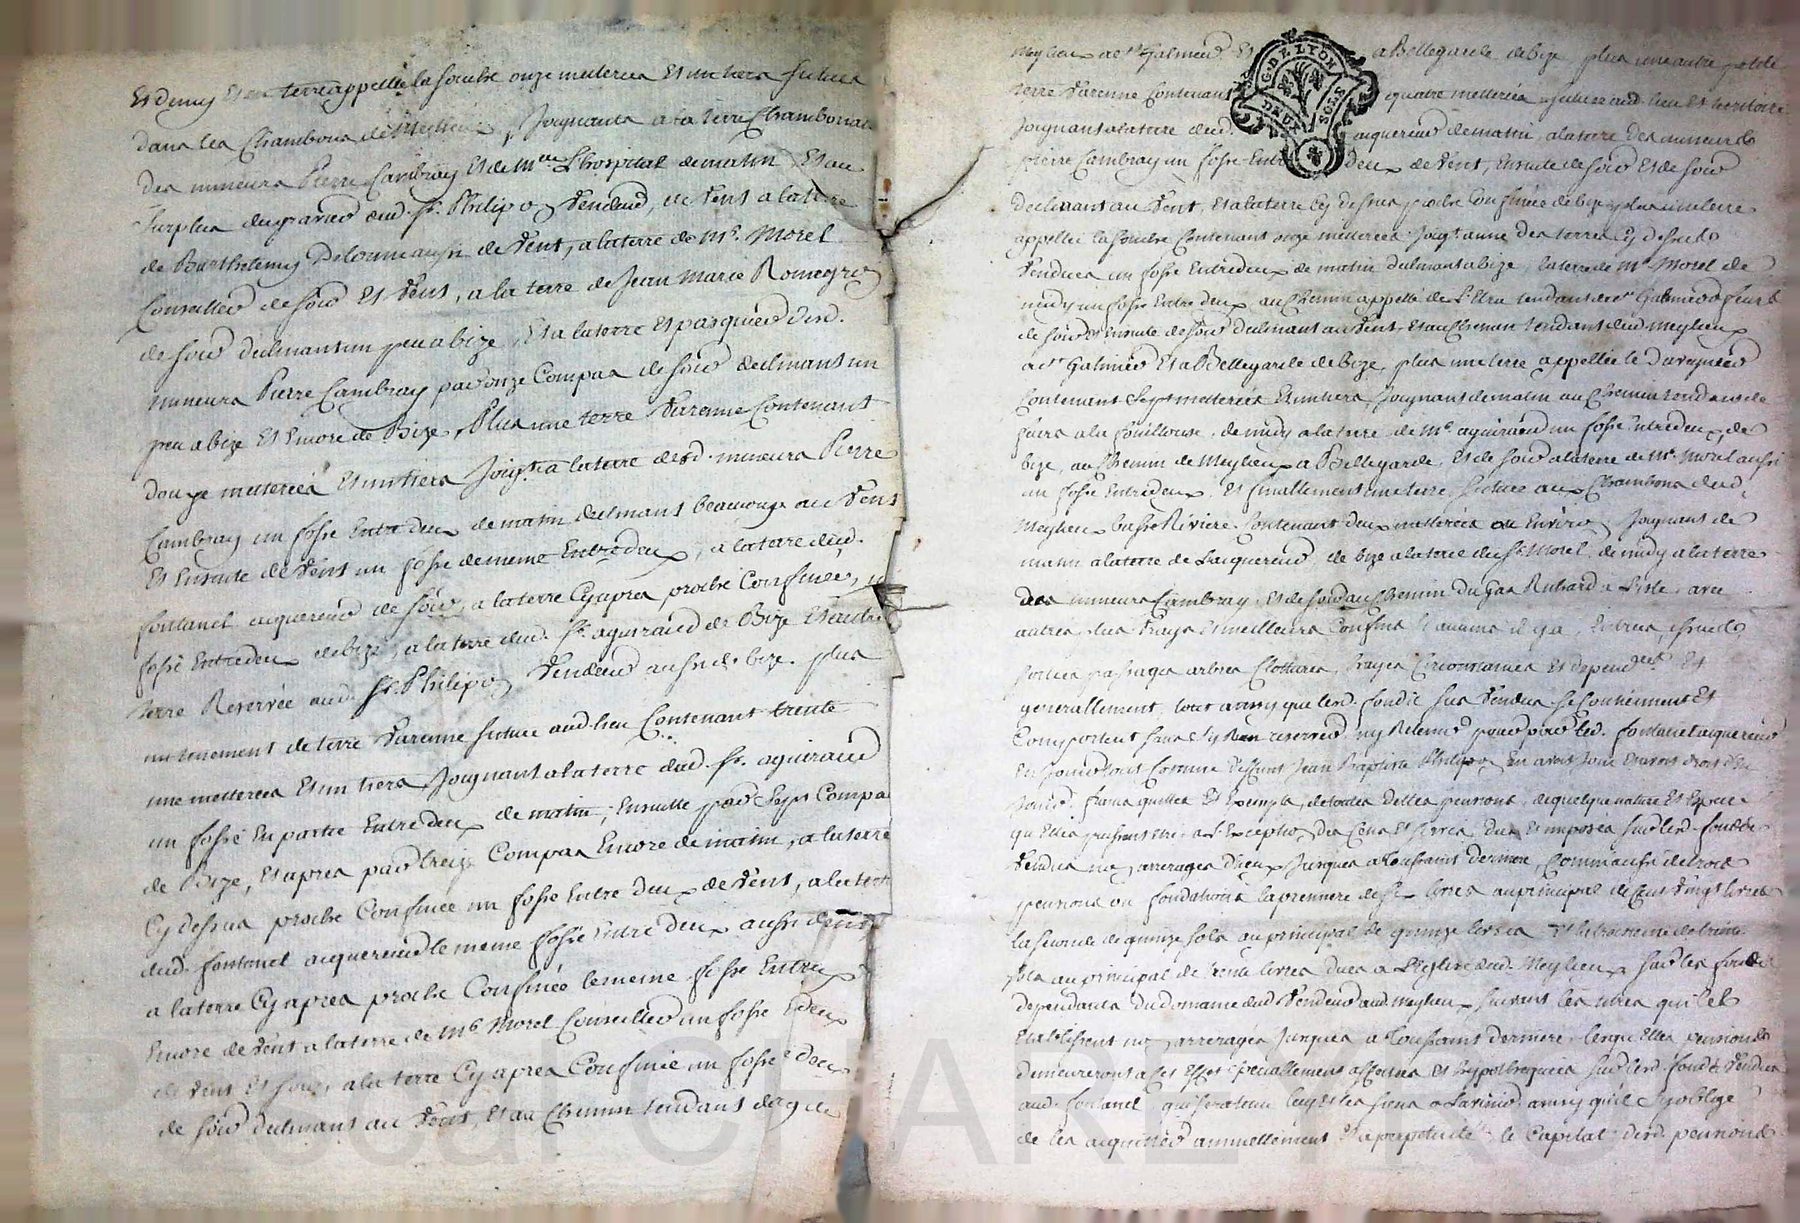 Et demy Et une terre appellée la fouche onze metterées Et un tiers scitués
dans les Chambons de Meylieu, Joignants a la terre Chambonas
des mineurs Pierre Cambray Et de Mr L'hospital de matin Et au
surplus du gravier dud. Sr. Philipon Vendeur, de Vent a la terre
de Barthelemy de vent, a la terre de Mr. Morel
Conseiller de soir Et Vent, a la terre de Jean Marie Romegron
de soir declinant un peu a bize, Et a la terre Et pasquier desd.
mineurs Pierre Cambray par onze Compas de soir declinant un
peu a bize Et Encore de Bize, Plus une terre Varenne Contenant
douze metterées Et un tiers Joigt. a la terre desd. mineurs Pierre
Cambray un fossé Entredeux de matin declinant beaucoup au Vent
Et Ensuite de Vent un fossé de meme Entredeux, a la terre dud.
fontanel acquereur de soir, a la terre Cyapres proche Confinée, un
fossé Entredeux de bize, a la terre dud. Sr. aguiraud de Bize Et autre
terre Reservée aud. Sr. Philipon Vendeur aussi de bize. plus
un tenement de terre Varenne scitué aud. lieu Contenant trente
une metterées Et un tiers Joignant a la terre dud. Sr. aguiraud
un fossé En partie Entredeux de matin, Ensuitte par Sept Compas
de Bize, Et apres par treize Compas Encore de matin, a la terre
Cy dessus proche Confinée un fossé Entre deux de Vent, a la terre
dud. fontanel acquereur le meme fossé Entre deux aussi de vent
a la terre Cyapres proche Confinée le meme fossé Entredeux
Encore de Vent a la terre de Mr Morel Conseiller un fossé Edeux
de Vent Et soir, a la terre Cyapres Confinée un fossé Edeux
de soir declinant au Vent, Et au Chemin tendant de
Meylieu a St. Galmier Et a Bellegarde de bize, plus une autre petite
terre Varenne Contenant quatre metterées scituée aud. lieu Et territoire
Joignant a la terre dud. acquereur de matin, a la terre des mineurs
pierre Cambray un fossé Entredeux de Vent, Ensuite de soir Et de soir
declinant au Vent, Et a la terre Cy dessus proche Confinée de bize, plus une terre
appellée la fouchée Contenant onze metterées Joigt. a une des terres Cy dessus
Vendues un fossé Entredeux de matin declinant a bize, la terre de Mr Morel de
midy un fossé Entredeux, au Chemin appellé de tendant de St Galmier a feurs
de soir Et Ensuite de soir declinant au Vent Et au Chemin tendant dud. Meylieu
a St Galmier Et a Bellegarde de bize, plus une terre appellée le
Contenant Sept metterées Et un tiers, Joignant de matin au Chemin tendant de
feurs a la fouillouse, de midy a la terre de Mr. aguiraud un fossé Entredeux, de
bize, au Chemin de Meylieux a Bellegarde, Et de soir a la terre de Mr. Morel aussi
un fossé Entredeux. Et finallement une terre scituée aux Chambons dud.
Meylieu basse Riviere Contenant deux metterées ou Environ, Joignant de
matin a la terre de L'acquereur de bize a la terre du Sr. Morel, de midy a la terre
des mineurs Cambray, Et de soir au Chemin du Gas Richard a L'isle, avec
autres plus Vrays Et meilleurs Confins si aucuns il y a, Entrées, issues
sorties passages arbres Clotures, hayes Circonstances Et dependces Et
generallement tout ainsy que lesd. fonds sus Vendus se Contiennent Et
Comportent sans y Rien reserver ny Retenir pour par led. fontanel acquereur
En Jouir tout Comme deffunt Jean Baptiste Philipon En avoit Joui Et avoit droit d'en
Jouir. francs quittes Et Exempts de toutes dettes pensions de quelque nature Et Espece
qu'Elles puissent Etre a L'Exception des Cens Et servis dus Et imposés sur lesd. fonds
Vendus no, arrerages d'yceux Jusques a Toussaint derniere, Comm'aussi de trois
pensions ou fondations la premiere de six livres au principal de Cent Vingt livres
la seconde de quinze sols au principal de quinze livres Et la troisieme de trente
sols au principal de trente livres dues a L'Eglise dud. Meylieu sur les fonds
dependants du domaine dud. Vendeur aud. Meylieu suivant les titres qui les
Etablissent no, arrerages Jusques a Toussaint derniere, lesquelles pensions
demeureront a Cet Effet specialement affectées Et hypothequées sur lesd. fonds Vendus
aud. fontanel, qui sera tenu luy Et les siens a L'avenir ainsy qu'il s'y oblige
de les acquitter annuellement Et a perpetuité, le Capital desd. pensions
G. DE LYON
DEUX SOLS
Pascal CHAREYRON